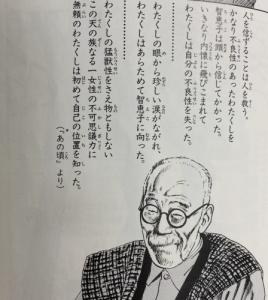 人を信ずることは人を救う。
かなり不良性のあったわたくしを
智恵子は頭から信じてかかった。
いきなり内懐に飛びこまれて
わたくしは自分の不良性を失った。
…………………
わたくしの眼から珍しい涙がながれ、
わたくしはあらためて智恵子に向った。
…………………
わたくしの猛獣性をさえ物ともしない
この天の族なる一女性の不可思議力に
無頼のわたくしは初めて自己の位置を知った。
(「あの頃」より)